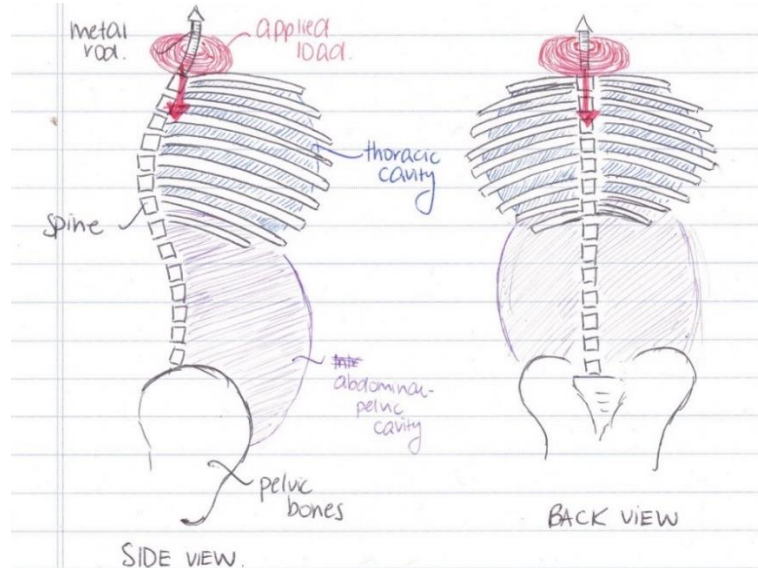 metal
rod.
applied
load.
thoracic
cavity
spine
abdominal-
pelvic
cavity
pelvic
bones
SIDE VIEW.
BACK VIEW